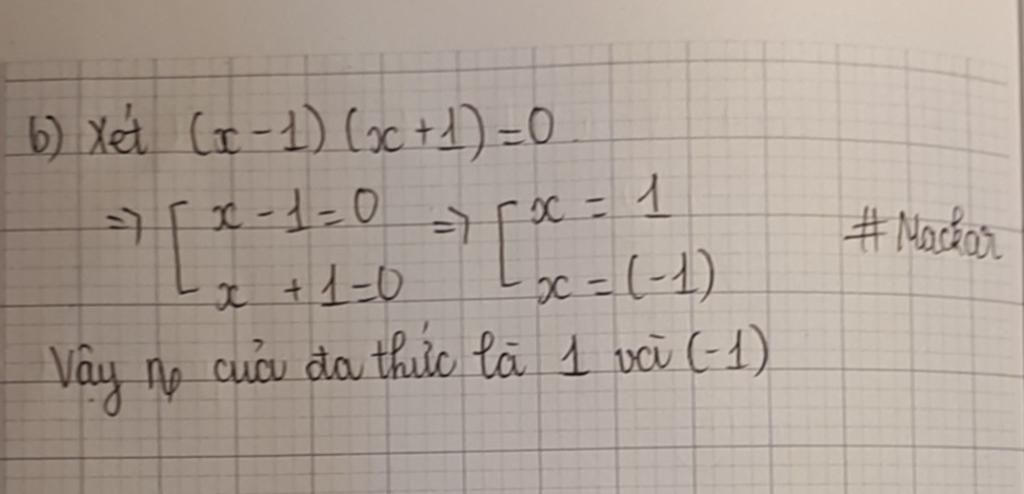 b) Xét (x-1)(x+1)=0
=> [ x-1=0 => [ x = 1
x +1=0 x = (-1)
#Mackar
Vậy n° của đa thức là 1 và (-1)